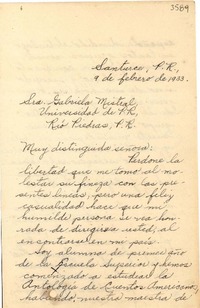 3589
Santurce, P.R.,
9 de febrero de 1933.
Sra. Gabriela Mistral,
Universidad de P.R.,
Río Piedras, P.R.
Muy distinguida señora:
Perdone la
libertad que me tomo al mo-
lestar su fineza con las pre-
sentes líneas, pero una feliz
casualidad hace que mi
humilde persona se vea hon-
rada de dirigirse a usted, al
encontrarse en mi país.
Soy alumna de primer año
de la Escuela Superior y hemos
comenzado a estudiar la
Antología de Cuentos Americanos,
habiendo nuestra maestra de